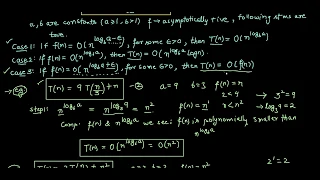 a, b are constants (a≥1, b>1) f → asymptotically +ive, following stmts are
true.
Case 1: If f(n) = O(n^(log_b a - ε)), for some ε>0, then T(n) = O(n^(log_b a))
Case 2: If f(n) = O(n^(log_b a)), then T(n) = O(n^(log_b a) logn).
Case 3: If f(n) = O(n^(log_b a + ε)) for some ε>0, then T(n) = O(f(n))
→ eg: T(n) = 9 T(n/3) + n → a=9 b=3 f(n)=n
2<9 3²=9
step 1: n^(log_b a) = n^(log_3 9) = n² f(n) = n¹ n<n² log_3 9=2
Comp. f(n) & n^(log_b a) we see: f(n) is polynomially smaller than
n^(log_b a)
T(n) = O(n^(log_b a)) = O(n²)
2¹=2